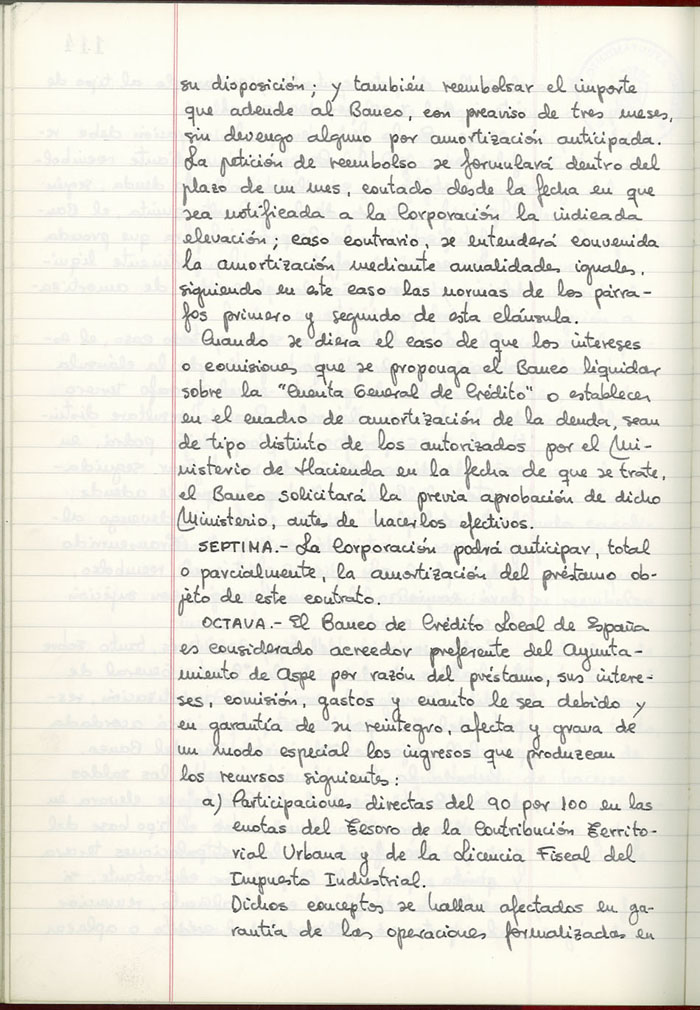 su disposición; y también reembolsar el importe
que adende al Banco, con preaviso de tres meses,
sin devengo alguno por amortización anticipada.
La petición de reembolso se formulará dentro del
plazo de un mes, contado desde la fecha en que
sea notificada a la Corporación la indicada
elevación; caso contrario, se entenderá convenida
la amortización mediante anualidades iguales,
siguiendo en este caso las normas de los párra-
fos primero y segundo de esta cláusula.
Cuando se diera el caso de que los intereses
o comisiones que se proponga el Banco liquidar
sobre la "Cuenta General de Crédito" o establecer
en el cuadro de amortización de la deuda, sean
de tipo distinto de los autorizados por el Mi-
nisterio de Hacienda en la fecha de que se trate,
el Banco solicitará la previa aprobación de dicho
Ministerio, antes de hacerlos efectivos.
SEPTIMA.- La Corporación podrá anticipar, total
o parcialmente, la amortización del préstamo ob-
jeto de este contrato.
OCTAVA.- El Banco de Crédito Local de España
es considerado acreedor preferente del Ayunta-
miento de Aspe por razón del préstamo, sus intere-
ses, comisión, gastos y cuanto le sea debido y
en garantía de su reintegro, afecta y grava de
un modo especial los ingresos que produzcan
los recursos siguientes:
a) Participaciones directas del 90 por 100 en las
cuotas del Tesoro de la Contribución Territo-
rial Urbana y de la Licencia Fiscal del
Impuesto Industrial.
Dichos conceptos se hallan afectados en ga-
rantía de las operaciones formalizadas en